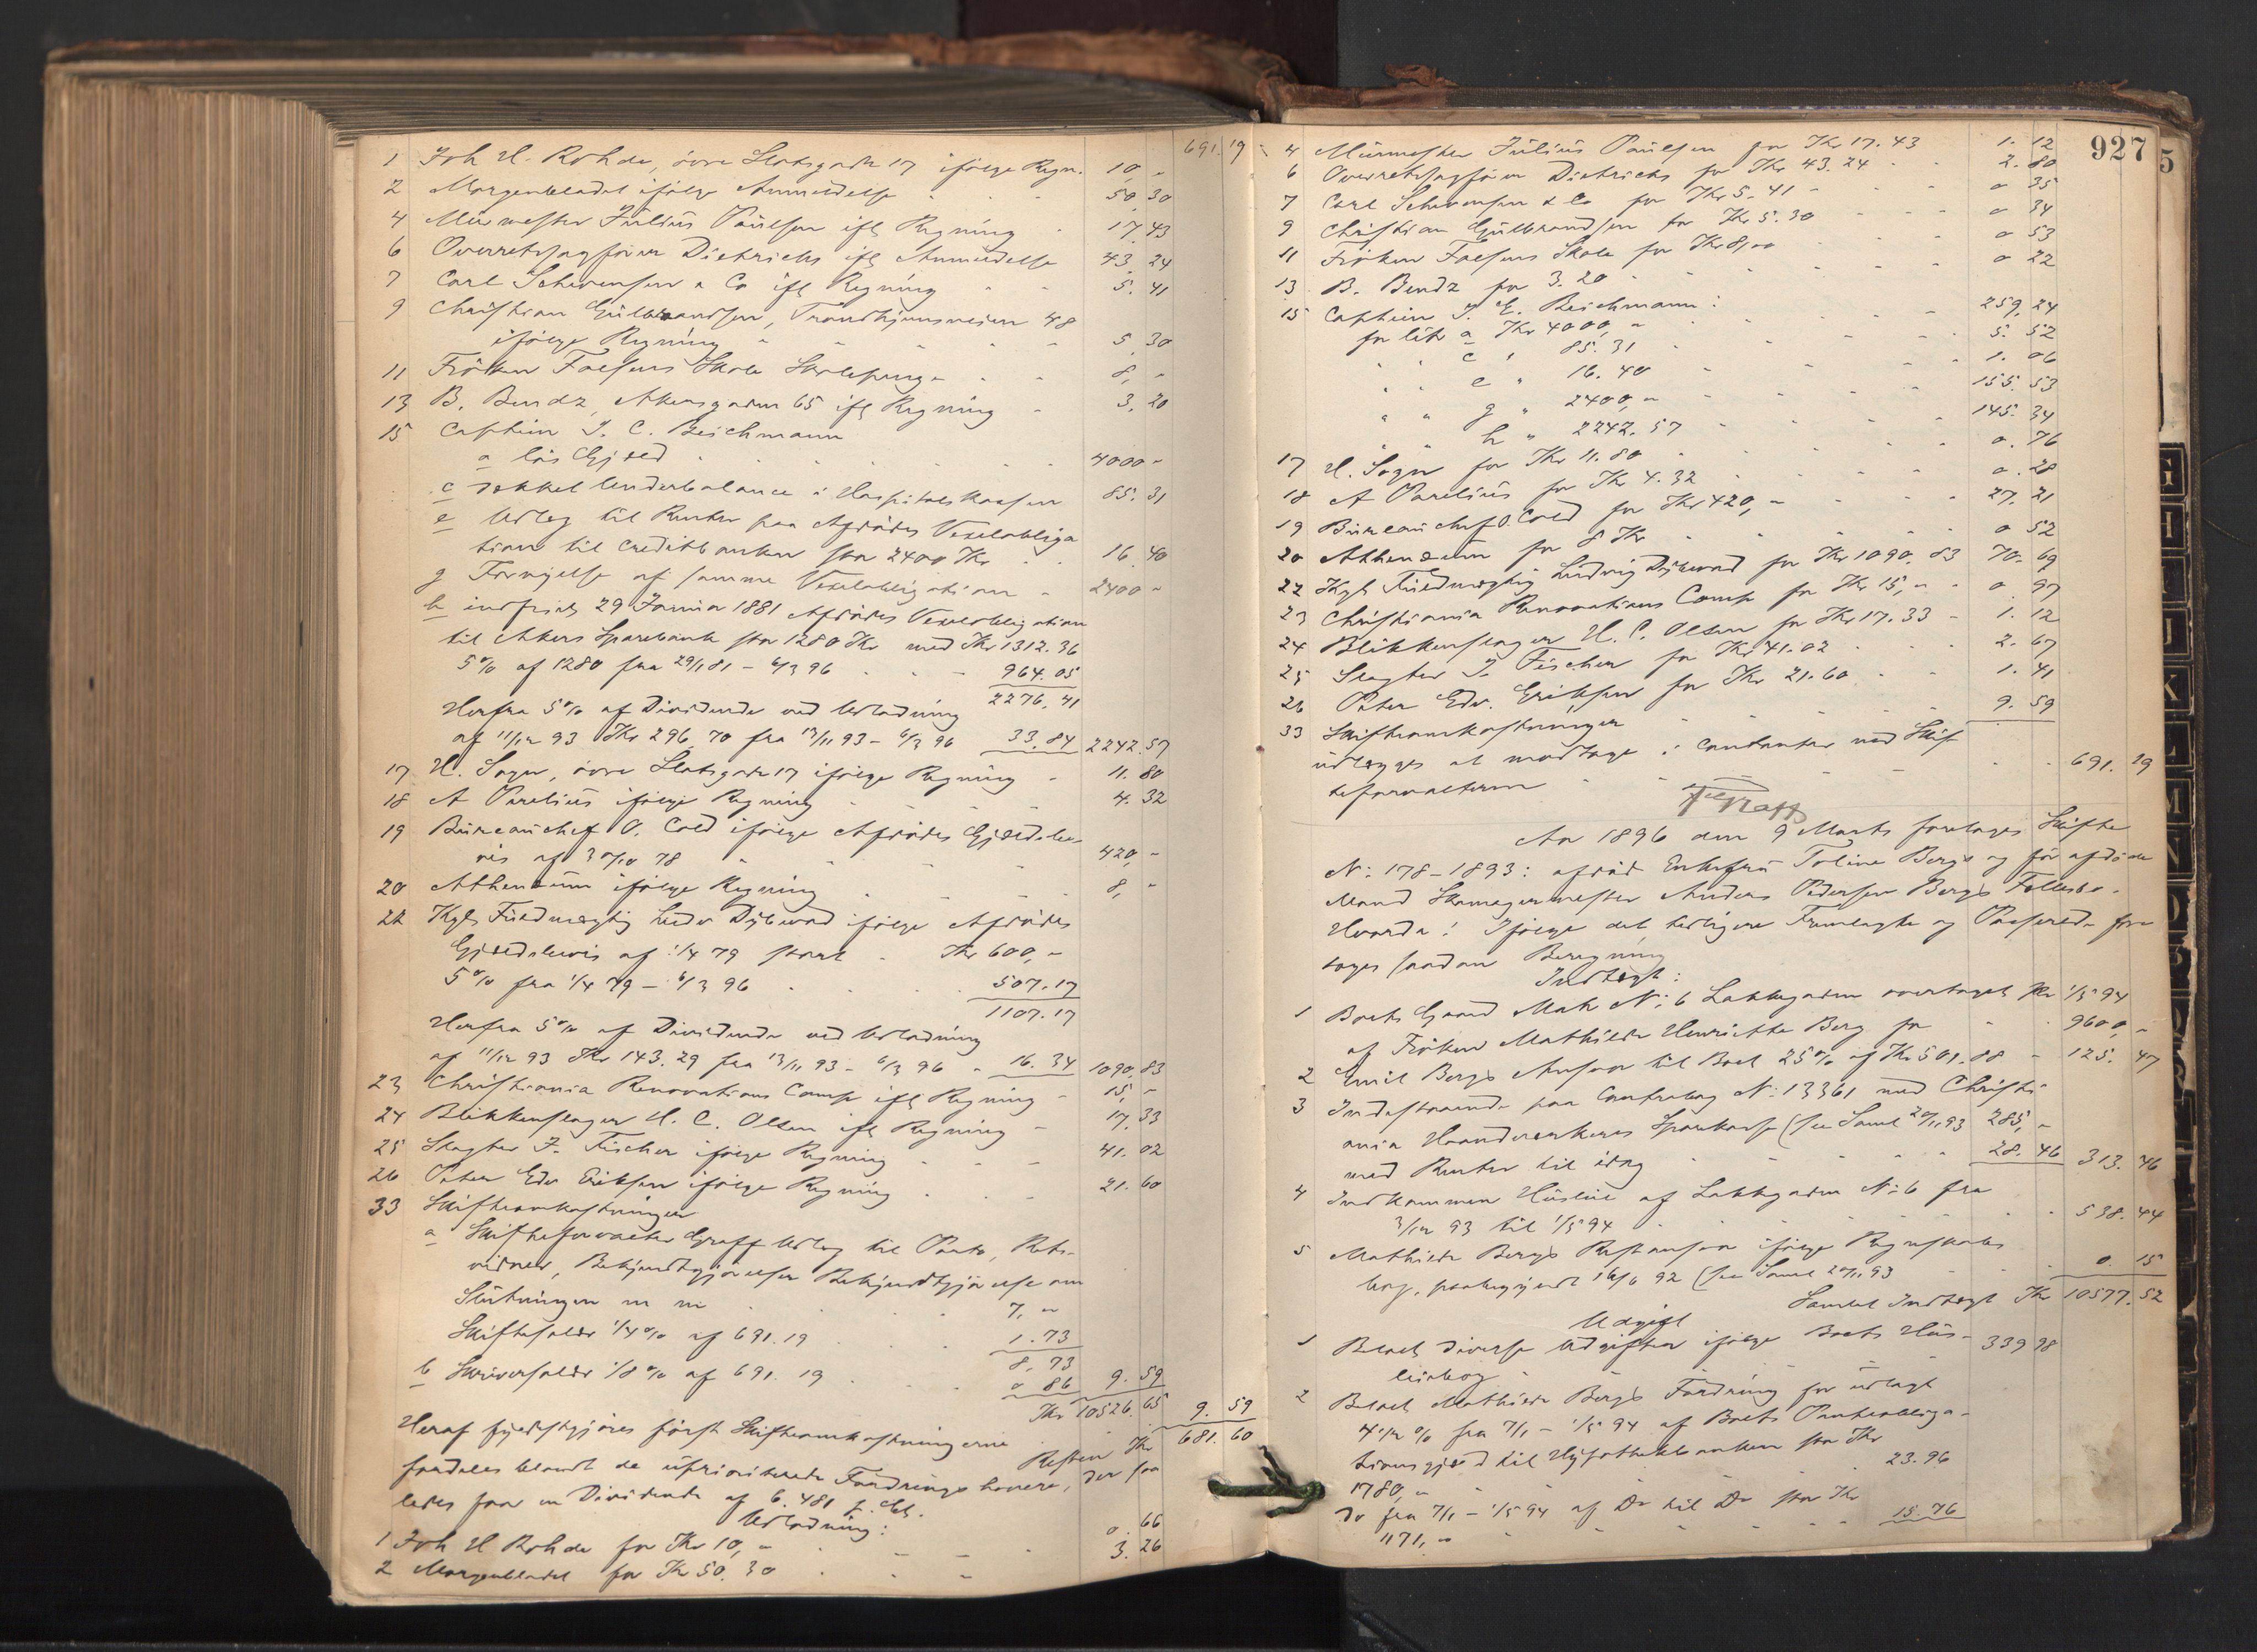 691. 19
1 Joh H. Rohde, övre Slotsgade 17 ifölge Regn. 10, "
2 Morgenbladet ifölge Anmeldelse 50, 30
4 Mürmester Julius Paulsen ifl Regning 17, 43
6 Overretssagförer Dietrichs ifl Anmeldelse 43. 24
7 Carl Schwensen & Co ifl Regning 5. 41
9 Christian Gulbrandsen, Trondhjemsveien 48
ifölge Regning 5, 30
11 Fröken Falsens Skole Skolepenge 8, "
13 B. Bendz, Akersgaden 65 ifl Regning 3, 20
15 Captein J. C. Beichmann
a lös Gjæld 4000 "
c dækket Underbalance i Hospitalskassen 85. 31
e Udlæg til Renter paa Afdødes Vexelobliga
tion til Creditbanken stor 2400 Kr 16. 40
g Fornyelse af samme Vexelobligation 2400 "
h indfriet 29 Januar 1881 Afdødes Vexelobligation
til Akers Sparebank stor 1280 Kr med Kr 1312. 36
5% af 1280 fra 29/1 81 - 6/3 96 964. 05
2276, 41
Herfra 5% af Dividende ved Udlodning
af 11/12 93 Kr 296, 70 fra 12/11 93 - 6/3 96 33. 84 2242. 57
17 H. Sogn, övre Slotsgade 17 ifölge Regning 11. 80
18 A Parelius ifölge Regning 4. 32
19 Bureauchef O. Cold ifölge Afdødes Gjældsbe
vis af 30/10 78 420, "
20 Athenæum ifölge Regning 8, "
22 Kgl. Fuldmægtig Ludv Dybwad ifölge Afdødes
Gjældsbevis af 1/4 79 stort Kr 600, "
5% fra 1/4 79 - 6/3 96 507. 17
1107. 17
Herfra 5% af Dividende ved Udlodning
af 11/12 93 Kr 143. 29 fra 13/11 93 - 6/3 96 16. 34 1090, 83
23 Christiania Renovations Comp ifl Regning 15, "
24 Blikkenslager H. C. Olsen ifl Regning 17. 33
25 Slagter J. Fischer ifölge Regning 41. 02
26 Peter Edv Eriksen ifölge Regning 21. 60
33 Skifteomkostninger
a Skifteforvalter Graff Udlæg til Porto, Rets-
vidner, Bekjendtgjörelser Bekjendtgjörelse om
Slutningen m m 7, "
Skiftesalær 1/4% af 691. 19 1. 73
8, 73
b Skriversalær 1/8% af 691. 19 0 86 9. 59
Kr 10526. 65
Heraf fyldestgjöres först Skifteomkostningerne 9. 59
Resten Kr 681. 60
fordeles blandt de uprioriterede Fordringshavere, der saa
ledes faar en Dividende af 6. 481 p. Ct.
Udlodning:
1 Joh H Rohde for Kr 10, " 0. 66
2 Morgenbladet for Kr 50. 30 3. 26
927
5
4 Mürmester Julius Paulsen for Kr 17. 43 1. 12
6 Overretssagförer Dietrichs for Kr 43. 24 2. 80
7 Carl Schwensen & Co for Kr 5. 41 0 35
9 Christian Gulbrandsen for Kr 5. 30 0 34
11 Fröken Falsens Skole for Kr 8, 00 0 53
13 B. Bendz for 3. 20 0 22
15 Captein J. C. Beichmann:
for litr a Kr 4000, " 259, 24
c " 85. 31 5. 52
e " 16. 40 1. 06
g " 2400, " 155. 53
h " 2242. 57 145. 34
17 H. Sogn for Kr 11. 80 0. 76
18 A Parelius for Kr 4. 32 0. 28
19 Bureauchef O. Cold for Kr 420, " 27. 21
20 Athenæum for 8 Kr 0 52
22 Kgl. Fuldmægtig Ludvig Dybwad for Kr 1090. 83 70. 69
23 Christiania Renovations Comp for Kr 15, " 0 97
24 Blikkenslager H. C. Olsen for Kr 17. 33 1. 12
25 Slagter J. Fischer for Kr 41. 02 2. 67
26 Peter Edv. Eriksen for Kr 21. 60 1. 41
33 Skifteomkostninger 9. 59
udlægges at modtage i Contanter ved Skif
teforvalteren 691. 19
Graff
Aar 1896 den 9 Marts foretoges Skifte
N: 178-1893: afdöd Enkefru Toline Bergs og för afdöde
Mand Skomagermester Anders Pedersen Bergs Fællesbo.
Hvorda: Ifölge det tidligere Fremlagte og Passerede fore
toges saadan Beregning
Indtægt:
1 Boets Gaard Matr N: 6 Lakkegaden overtaget pr 1/5 94
af Fröken Mathilde Henriette Berg for 9600, "
2 Emil Bergs Ansvar til Boet 25% af Kr 501. 88 125. 47
3 Indestaaende paa Contrabog N: 13361 med Christi
ania Haandverkeres Sparekasse (se Saml 20/11 93 285, "
med Renter til idag 28. 46 313. 46
4 Indkommen Husleie af Lakkegaden N: 6 fra
3/12 93 til 1/5 94 538. 44
5 Mathilde Bergs Restansvar ifölge Regnskabs
bog, paabegyndt 16/6 92 (se Saml 20/11 93 0. 15
Samlet Indtægt Kr 10577. 52
Udgift
1 Betalt diverse Udgifter ifölge Boets Hus-
leiebog 339 98
2 Betalt Mathilde Bergs Fordring for udlagt
4 1/2 % fra 7/1 - 1/5 94 af Boets Panteobliga-
tionsgjæld til Hypothekbanken stor Kr
1780, " 23. 96
Do fra 7/1 - 1/5 94 af Do til Do stor Kr
1171, " 15. 76
G
H
I
J
K
L
M
N
O
P